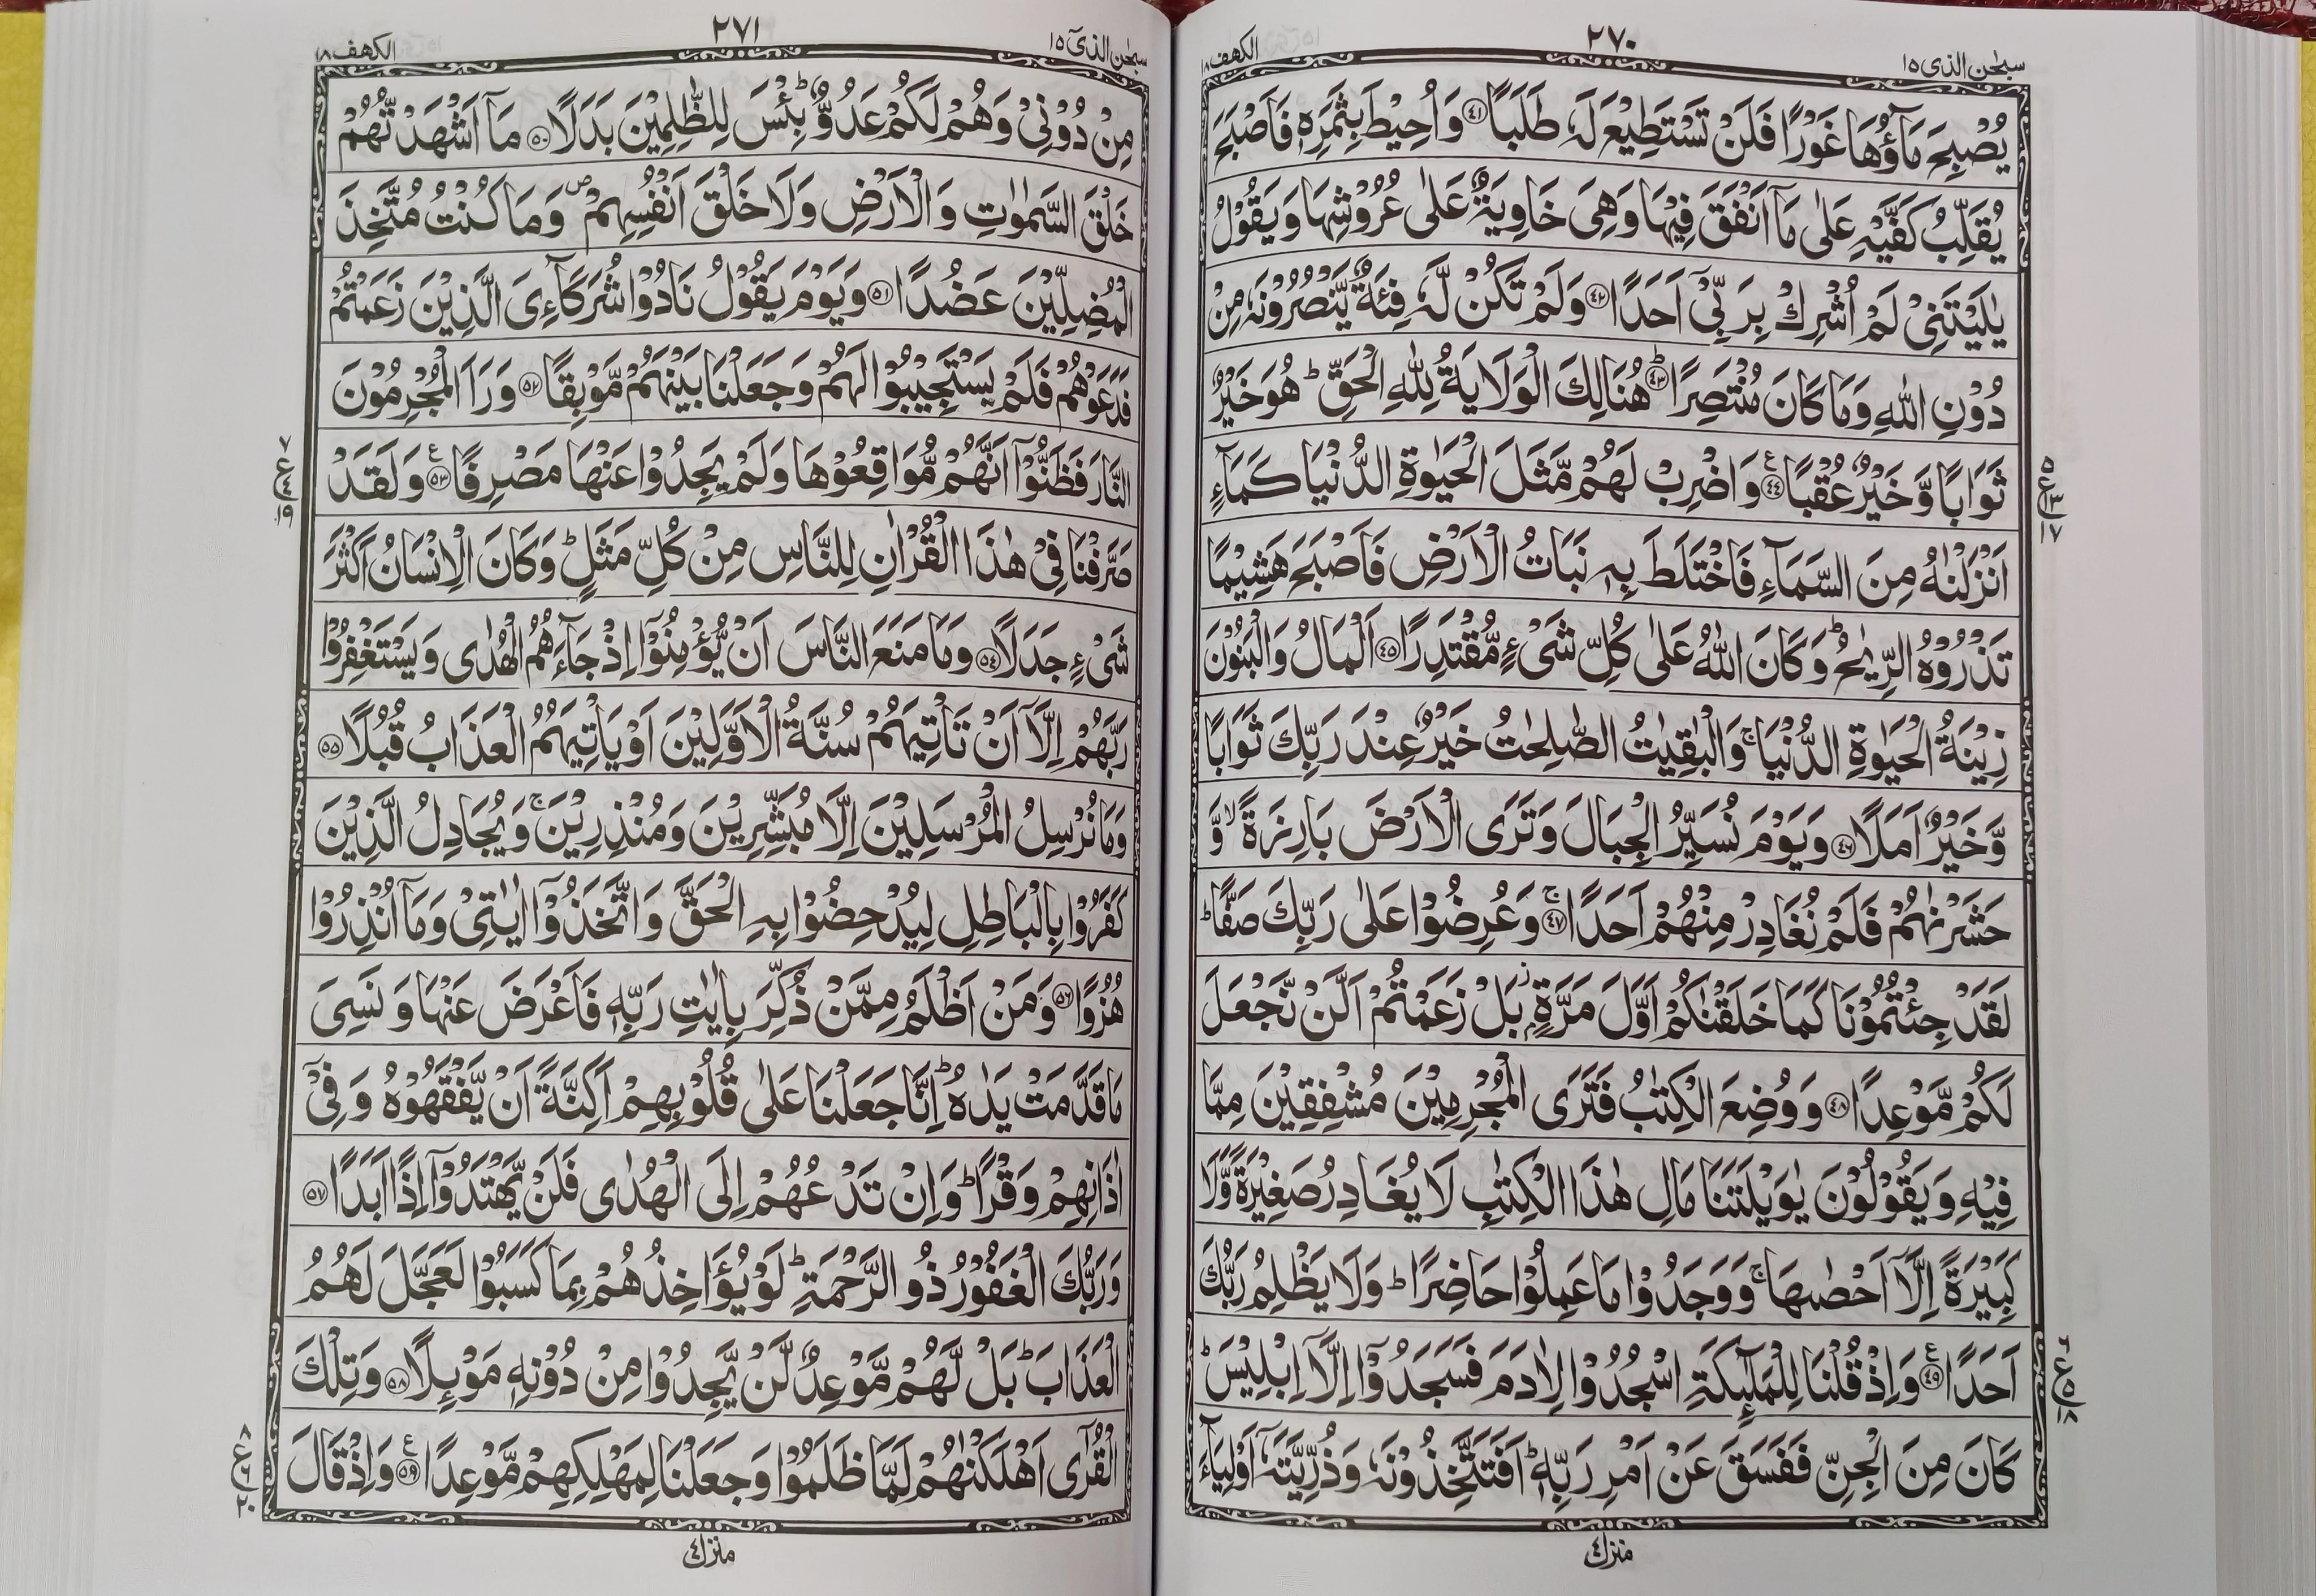 سبحٰن الذی ١٥
٢٧٠
الكهف ١٨
يُصْبِحَ مَآؤُهَا غَوْرًا فَلَنْ تَسْتَطِيْعَ لَهٗ طَلَبًا ﴿٤١﴾ وَاُحِيْطَ بِثَمَرِهٖ فَاَصْبَحَ
يُقَلِّبُ كَفَّيْهِ عَلٰى مَآ اَنْفَقَ فِيْهَا وَهِىَ خَاوِيَةٌ عَلٰى عُرُوْشِهَا وَيَقُوْلُ
يٰلَيْتَنِىْ لَمْ اُشْرِكْ بِرَبِّىْۤ اَحَدًا ﴿٤٢﴾ وَلَمْ تَكُنْ لَّهٗ فِئَةٌ يَّنْصُرُوْنَهٗ مِنْ
دُوْنِ اللّٰهِ وَمَا كَانَ مُنْتَصِرًا ﴿٤٣﴾ؕ هُنَالِكَ الْوَلَايَةُ لِلّٰهِ الْحَقِّ ؕ هُوَ خَيْرٌ
ثَوَابًا وَّخَيْرٌ عُقْبًا ﴿٤٤﴾ع وَاضْرِبْ لَهُمْ مَّثَلَ الْحَيٰوةِ الدُّنْيَا كَمَآءٍ
اَنْزَلْنٰهُ مِنَ السَّمَآءِ فَاخْتَلَطَ بِهٖ نَبَاتُ الْاَرْضِ فَاَصْبَحَ هَشِيْمًا
تَذْرُوْهُ الرِّيٰحُ ؕ وَكَانَ اللّٰهُ عَلٰى كُلِّ شَىْءٍ مُّقْتَدِرًا ﴿٤٥﴾ اَلْمَالُ وَالْبَنُوْنَ
زِيْنَةُ الْحَيٰوةِ الدُّنْيَا ۚ وَالْبٰقِيٰتُ الصّٰلِحٰتُ خَيْرٌ عِنْدَ رَبِّكَ ثَوَابًا
وَّخَيْرٌ اَمَلًا ﴿٤٦﴾ وَيَوْمَ نُسَيِّرُ الْجِبَالَ وَتَرَى الْاَرْضَ بَارِزَةً ۙ وَّ
حَشَرْنٰهُمْ فَلَمْ نُغَادِرْ مِنْهُمْ اَحَدًا ﴿٤٧﴾ۚ وَعُرِضُوْا عَلٰى رَبِّكَ صَفًّا ؕ
لَقَدْ جِئْتُمُوْنَا كَمَا خَلَقْنٰكُمْ اَوَّلَ مَرَّةٍۭ ز بَلْ زَعَمْتُمْ اَلَّنْ نَّجْعَلَ
لَكُمْ مَّوْعِدًا ﴿٤٨﴾ وَوُضِعَ الْكِتٰبُ فَتَرَى الْمُجْرِمِيْنَ مُشْفِقِيْنَ مِمَّا
فِيْهِ وَيَقُوْلُوْنَ يٰوَيْلَتَنَا مَالِ هٰذَا الْكِتٰبِ لَا يُغَادِرُ صَغِيْرَةً وَّلَا
كَبِيْرَةً اِلَّاۤ اَحْصٰىهَا ۚ وَوَجَدُوْا مَا عَمِلُوْا حَاضِرًا ؕ وَلَا يَظْلِمُ رَبُّكَ
اَحَدًا ﴿٤٩﴾ع وَاِذْ قُلْنَا لِلْمَلٰٓئِكَةِ اسْجُدُوْا لِاٰدَمَ فَسَجَدُوْۤا اِلَّاۤ اِبْلِيْسَ ؕ
كَانَ مِنَ الْجِنِّ فَفَسَقَ عَنْ اَمْرِ رَبِّهٖ ؕ اَفَتَتَّخِذُوْنَهٗ وَذُرِّيَّتَهٗۤ اَوْلِيَآءَ
منزل ٤
سبحٰن الذی ١٥
٢٧١
الكهف ١٨
مِنْ دُوْنِىْ وَهُمْ لَكُمْ عَدُوٌّ ؕ بِئْسَ لِلظّٰلِمِيْنَ بَدَلًا ﴿٥٠﴾ مَآ اَشْهَدْتُّهُمْ
خَلْقَ السَّمٰوٰتِ وَالْاَرْضِ وَلَا خَلْقَ اَنْفُسِهِمْ ص وَمَا كُنْتُ مُتَّخِذَ
الْمُضِلِّيْنَ عَضُدًا ﴿٥١﴾ وَيَوْمَ يَقُوْلُ نَادُوْا شُرَكَآءِىَ الَّذِيْنَ زَعَمْتُمْ
فَدَعَوْهُمْ فَلَمْ يَسْتَجِيْبُوْا لَهُمْ وَجَعَلْنَا بَيْنَهُمْ مَّوْبِقًا ﴿٥٢﴾ وَرَاَ الْمُجْرِمُوْنَ
النَّارَ فَظَنُّوْۤا اَنَّهُمْ مُّوَاقِعُوْهَا وَلَمْ يَجِدُوْا عَنْهَا مَصْرِفًا ﴿٥٣﴾ع وَلَقَدْ
صَرَّفْنَا فِىْ هٰذَا الْقُرْاٰنِ لِلنَّاسِ مِنْ كُلِّ مَثَلٍ ؕ وَكَانَ الْاِنْسَانُ اَكْثَرَ
شَىْءٍ جَدَلًا ﴿٥٤﴾ وَمَا مَنَعَ النَّاسَ اَنْ يُّؤْمِنُوْۤا اِذْ جَآءَهُمُ الْهُدٰى وَيَسْتَغْفِرُوْا
رَبَّهُمْ اِلَّاۤ اَنْ تَاْتِيَهُمْ سُنَّةُ الْاَوَّلِيْنَ اَوْ يَاْتِيَهُمُ الْعَذَابُ قُبُلًا ﴿٥٥﴾
وَمَا نُرْسِلُ الْمُرْسَلِيْنَ اِلَّا مُبَشِّرِيْنَ وَمُنْذِرِيْنَ ۚ وَيُجَادِلُ الَّذِيْنَ
كَفَرُوْا بِالْبَاطِلِ لِيُدْحِضُوْا بِهِ الْحَقَّ وَاتَّخَذُوْۤا اٰيٰتِىْ وَمَآ اُنْذِرُوْا
هُزُوًا ﴿٥٦﴾ وَمَنْ اَظْلَمُ مِمَّنْ ذُكِّرَ بِاٰيٰتِ رَبِّهٖ فَاَعْرَضَ عَنْهَا وَنَسِىَ
مَا قَدَّمَتْ يَدٰهُ ؕ اِنَّا جَعَلْنَا عَلٰى قُلُوْبِهِمْ اَكِنَّةً اَنْ يَّفْقَهُوْهُ وَفِىْۤ
اٰذَانِهِمْ وَقْرًا ؕ وَاِنْ تَدْعُهُمْ اِلَى الْهُدٰى فَلَنْ يَّهْتَدُوْۤا اِذًا اَبَدًا ﴿٥٧﴾
وَرَبُّكَ الْغَفُوْرُ ذُو الرَّحْمَةِ ؕ لَوْ يُؤَاخِذُهُمْ بِمَا كَسَبُوْا لَعَجَّلَ لَهُمُ
الْعَذَابَ ؕ بَلْ لَّهُمْ مَّوْعِدٌ لَّنْ يَّجِدُوْا مِنْ دُوْنِهٖ مَوْئِلًا ﴿٥٨﴾ وَتِلْكَ
الْقُرٰٓى اَهْلَكْنٰهُمْ لَمَّا ظَلَمُوْا وَجَعَلْنَا لِمَهْلِكِهِمْ مَّوْعِدًا ﴿٥٩﴾ع وَاِذْ قَالَ
منزل ٤